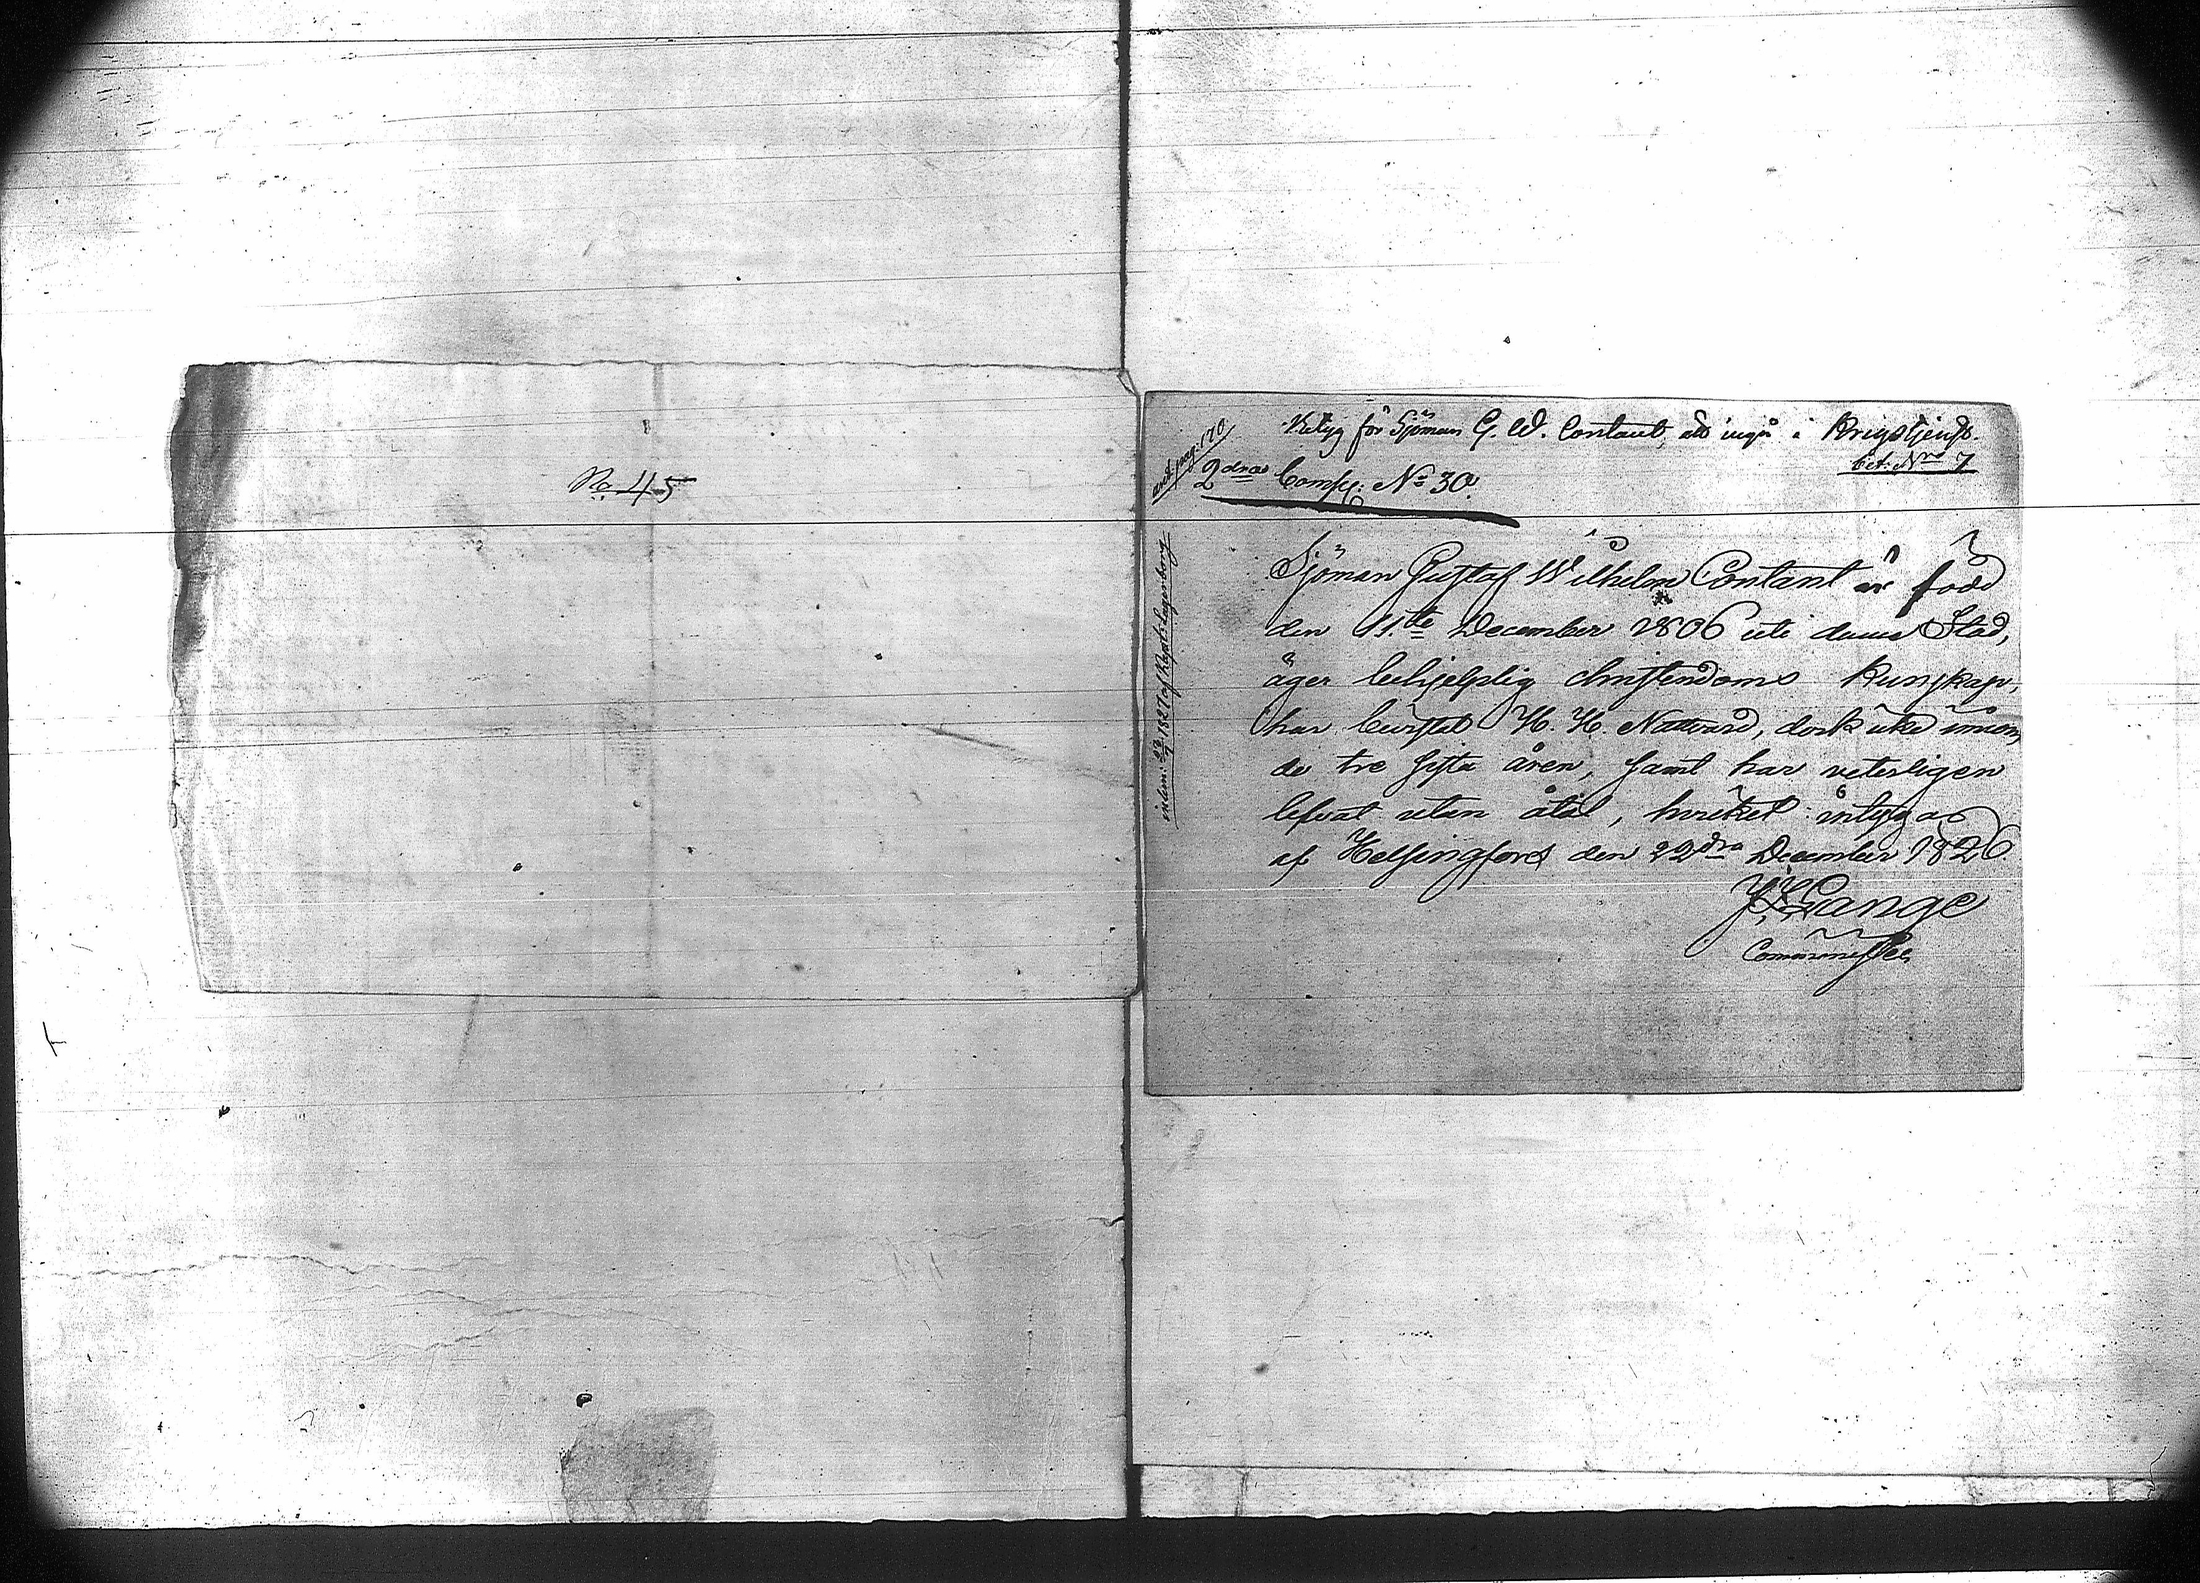 No 45
Betyg för Sjöman G. W. Contant, att ingå i Krigstjenst.
bet: Nro 7
and. pag. 170
2dra Comp: No 30.
inlem: 23/1 1827 af Kapt: Lagerborg
Sjöman Gustaf Wilhelm Contant är född
den 11.te December 1806 uti denna Stad,
äger behjelplig christendoms kunskap,
har bevistat H. H. Nattvard, dock icke innom
de tre sista åren, samt har veterligen
lefvat utan åtal, hvilket intygas
af Helsingfors den 22dra December 1826.
Lange
Comminister